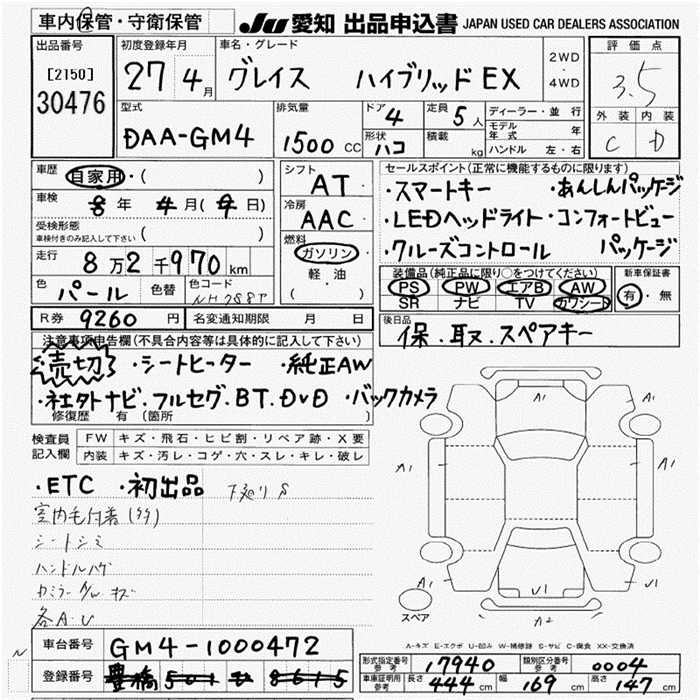 車内保管・守衛保管
JU 愛知 出品申込書 JAPAN USED CAR DEALERS ASSOCIATION
出品番号 初度登録年月 車名・グレード 2WD ・ 4WD 評価点
[2150] 30476 27 4月 グレイス ハイブリッド EX 3.5
型式 排気量 ドア 4 定員 5人 ディーラー・並行 外装 内装
モデル年式 年
DAA-GM4 1500 CC 形状 ハコ 積載 kg ハンドル 左・右 C D
車歴 自家用・( ) シフト AT セールスポイント(正常に機能するものに限ります)
車検 8年 4月(9日) 冷房 AAC ・スマートキー ・あんしんパッケージ
受検形態 車検付きのみ記入して下さい ( ) 燃料 ガソリン ・軽油 ( ) ・LEDヘッドライト・コンフォートビュー
走行 8万2千970km ・クルーズコントロール パッケージ
色 パール 色替 色コード NH788P 装備品(純正品に限り○をつけてください) 新車保証書
PS PW エアB AW 有・無
SR ナビ TV カワシート
R券 9260円 名変通知期限 月 日 後日品
保.取.スペアキー
注意事項申告欄(不具合内容等は具体的に記入して下さい)
売切 ・シートヒーター ・純正AW
・社外ナビ.フルセグ.BT.DVD ・バックカメラ
修復歴 有 (箇所 )
検査員記入欄 FW キズ・飛石・ヒビ割・リペア跡・X要
内装 キズ・汚レ・コゲ・穴・スレ・キレ・破レ
・ETC ・初出品 下廻りS
室内毛付着(多)
シートシミ
ハンドルハゲ
各A.U
A1
A1
A1
A1
A1
V1
V1
A2
スペア
A-キズ E-エクボ U-凹み W-補修跡 S-サビ C-腐食 XX-交換済
車台番号 GM4-1000472
登録番号 豊橋 501 8615
N
形式指定番号 参考 17940 類別区分番号 参考 0004
車庫証明用 参考 長さ 444cm 幅 169cm 高さ 147cm